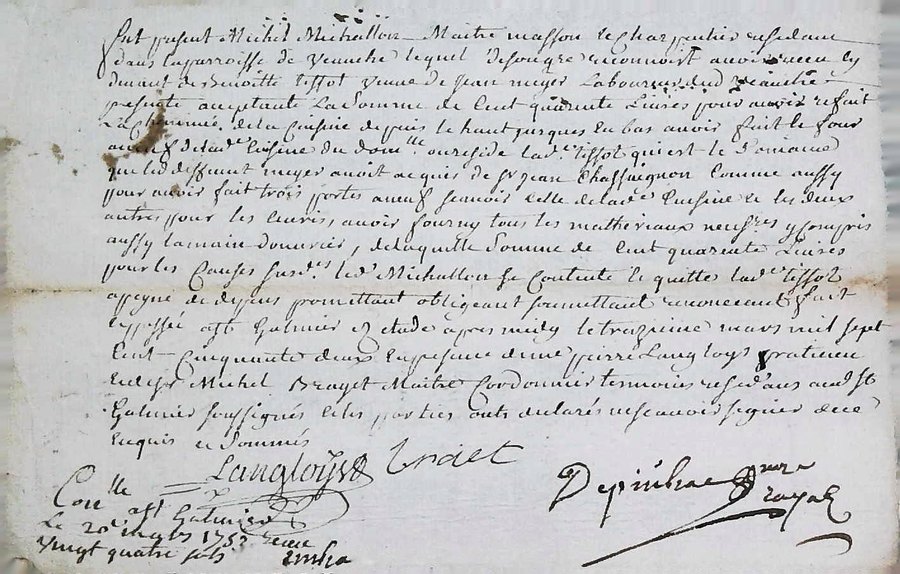 fut present Michel Michallon Maitre masson et Charpentier residant
dans la parroisse de Veauche lequel de son gre reconnoit avoir receu cy
devant de Benoitte tissot veuve de Jean meyer Laboureur dud Veauche
presente acceptante La Somme de Cent quarente Livres pour avoir refait
La Cheminée de la Cuisine depuis le haut jusques en bas avoir fait le four
a neuf de lad.e Cuisine du dom.lle ou reside lad.e tissot qui est le Domaine
que led deffunt meyer avoit acquis de Sr Jean Chassaignon Comme aussy
pour avoir fait trois portes a neuf scavoir Celle de lad.e Cuisine et les deux
autres pour les ecuries, avoir fourny tous les matheriaux y Compris
aussy la main d'ouvrier, de laquelle Somme de Cent quarente Livres
pour les Causes Susd.es led. Michallon se Contente et quitte lad.e tissot
a peyne de depens promettant obligeant soumettant renonceant fait
et passé a St Galmier etude apres midy le trezieme mars mil sept
Cent Cinquante deux en presence de me pierre Langloys praticien
et de Sr Michel Brayet Maitre Cordonnier temoins resid.ans aud St
Galmier soussignés et les parties onts declarés ne scavoir signer de ce
Enquis et Sommés
Langloys Braiet
Depinhac nore royal
Con.lle a St Galmier
Le 20e mars 1752 receu
vingt quatre sols